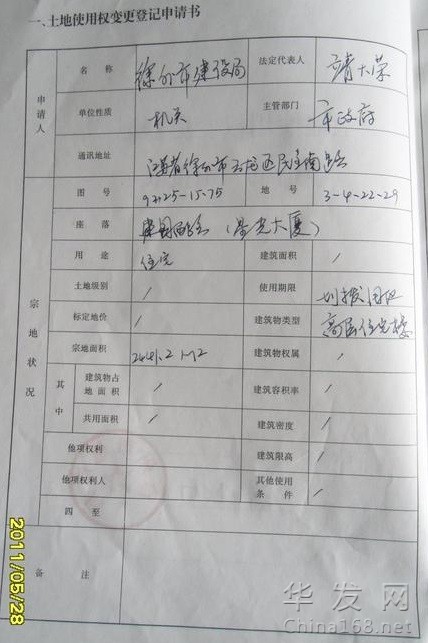 一、土地使用权变更登记申请书
申请人 名称 徐州市建设局 法定代表人 大荣
单位性质 机关 主管部门 市政府
通讯地址 江苏省徐州市云龙区民主南路
宗地状况 图号 92125-15-75 地号 3-4-22-29
座落 建国西路（星光大厦）
用途 住宅 建筑面积 /
土地级别 / 使用期限 划拨用地
标定地价 / 建筑物类型 高层住宅楼
宗地面积 2441.2 M2 建筑物权属 /
其中 建筑物占地面积 / 建筑容积率 /
共用面积 / 建筑密度 /
他项权利 建筑限高 /
他项权利人 其他使用条件 /
四至
备注
2011/05/28
华发网
China168.net